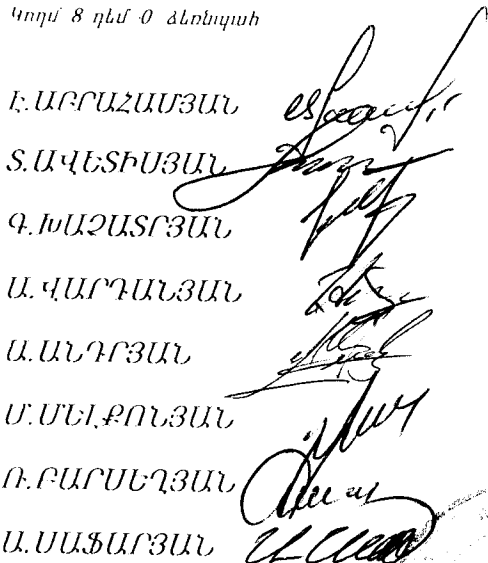 Կողմ 8 դեմ 0 ձեռնպահ
Է.ԱԲՐԱՀԱՄՅԱՆ
Տ.ԱՎԵՏԻՍՅԱՆ
Գ.ԽԱՉԱՏՐՅԱՆ
Ա.ՎԱՐԴԱՆՅԱՆ
Ա.ԱՆԴՐՅԱՆ
Մ.ՄԵԼՔՈՆՅԱՆ
Ռ.ԲԱՐՍԵՂՅԱՆ
Ա.ՍԱՖԱՐՅԱՆ